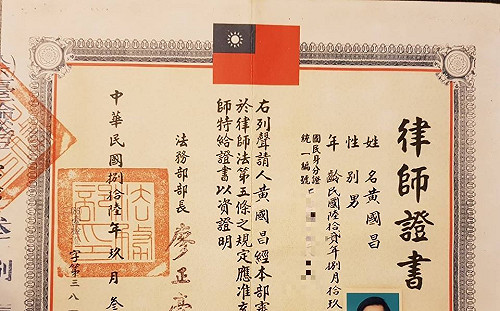 律師證書
姓名黃國昌
性別男
年齡民國陸拾貳年捌月拾玖
國民身分證
統一編號
右列聲請人黃國昌經本部審
於律師法第五條之規定應准充
師特給證書以資證明
法務部部長 廖正豪
中華民國捌拾陸年玖月叁
字第三八